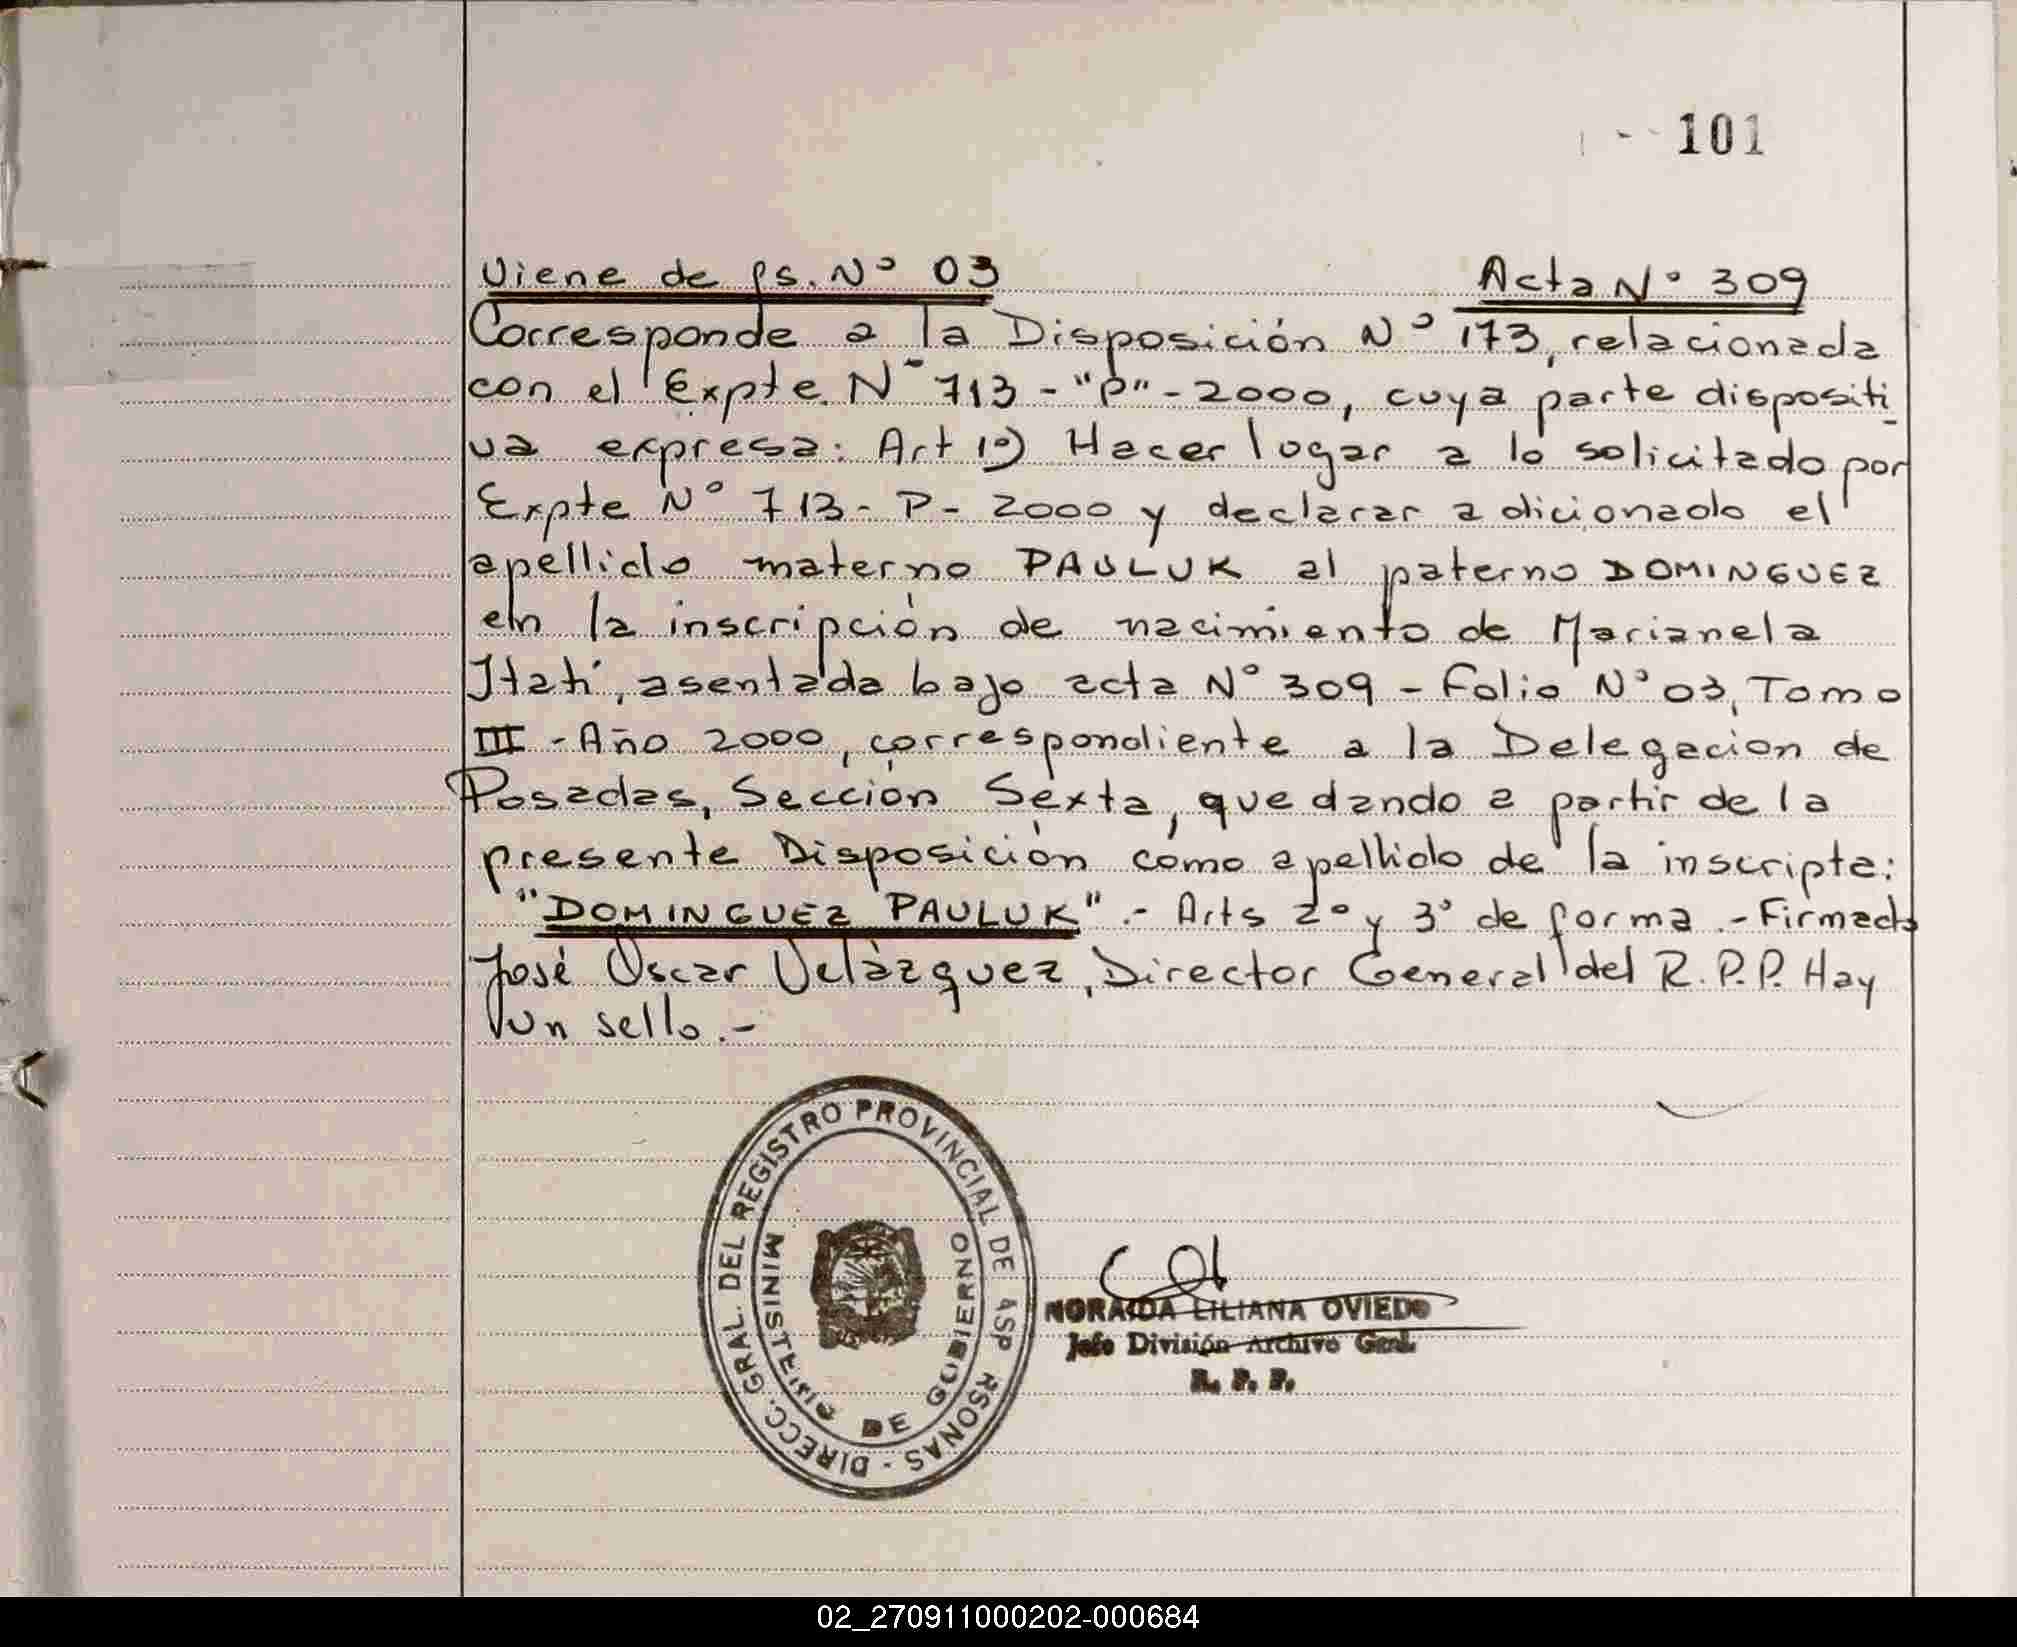 101
Viene de fs. Nº 03 Acta Nº 309
Corresponde a la Disposición Nº 173, relacionada
con el Expte. Nº 713 - "P" - 2000, cuya parte dispositi
va expresa: Art 1º) Hacer lugar a lo solicitado por
Expte Nº 713 - P - 2000 y declarar adicionado el
apellido materno PAULUK al paterno DOMINGUEZ
en la inscripción de nacimiento de Marianela
Itatí, asentada bajo acta Nº 309 - Folio Nº 03, Tomo
III - Año 2000, correspondiente a la Delegacion de
Posadas, Sección Sexta, quedando a partir de la
presente Disposición como apellido de la inscripta:
"DOMINGUEZ PAULUK" .- Arts 2º y 3º de forma .- Firmado
José Oscar Velázquez, Director General del R.P.P. Hay
un sello.-
DIRECC. GRAL. DEL REGISTRO PROVINCIAL DE ASP RSONAS -
MINISTERIO DE GOBIERNO
NORAIDA LILIANA OVIEDO
Jefe División Archivo Gral.
R. P. P.
02_270911000202-000684